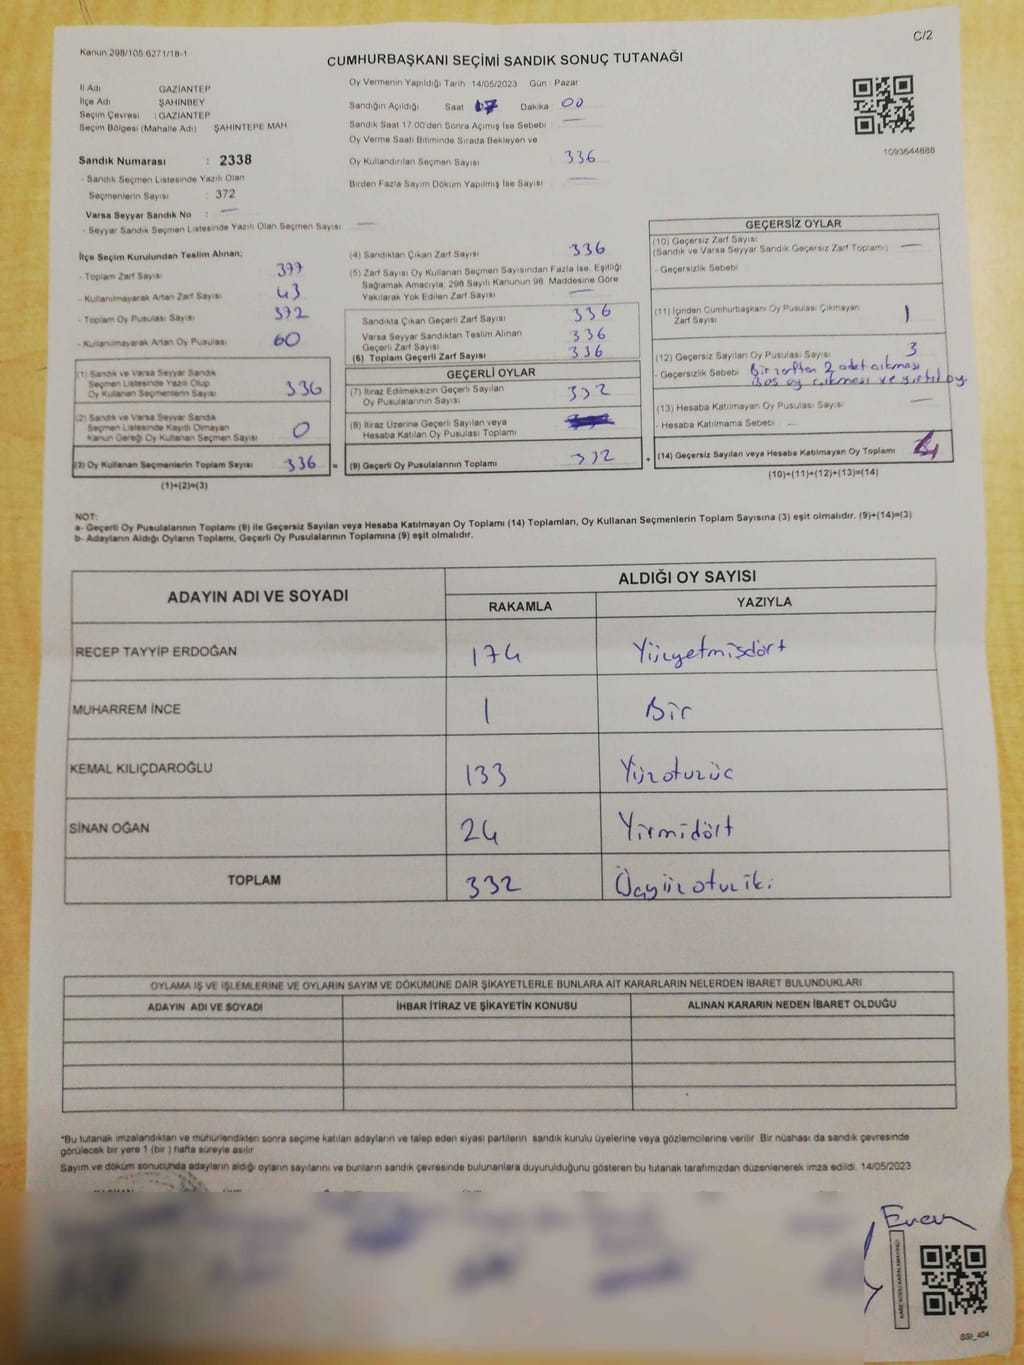 Kanun 298/105 6271/18-1
C/2
CUMHURBAŞKANI SEÇİMİ SANDIK SONUÇ TUTANAĞI
İl Adı GAZİANTEP
İlçe Adı ŞAHİNBEY
Seçim Çevresi : GAZİANTEP
Seçim Bölgesi (Mahalle Adı) ŞAHİNTEPE MAH
Sandık Numarası : 2338
- Sandık Seçmen Listesinde Yazılı Olan
Seçmenlerin Sayısı : 372
Varsa Seyyar Sandık No : —
- Seyyar Sandık Seçmen Listesinde Yazılı Olan Seçmen Sayısı —
Oy Vermenin Yapıldığı Tarih 14/05/2023 Gün Pazar
Sandığın Açıldığı Saat 17 Dakika 00
Sandık Saat 17:00'den Sonra Açılmış İse Sebebi —
Oy Verme Saati Bitiminde Sırada Bekleyen ve
Oy Kullandırılan Seçmen Sayısı 336
Birden Fazla Sayım Döküm Yapılmış İse Sayısı —
1093644888
İlçe Seçim Kurulundan Teslim Alınan;
- Toplam Zarf Sayısı 377
- Kullanılmayarak Artan Zarf Sayısı 43
- Toplam Oy Pusulası Sayısı 372
- Kullanılmayarak Artan Oy Pusulası 60
(1) Sandık ve Varsa Seyyar Sandık
Seçmen Listesinde Yazılı Olup
Oy Kullanan Seçmenlerin Sayısı 336
(2) Sandık ve Varsa Seyyar Sandık
Seçmen Listesinde Kayıtlı Olmayan
Kanun Gereği Oy Kullanan Seçmen Sayısı 0
(3) Oy Kullanan Seçmenlerin Toplam Sayısı 336 =
(1)+(2)=(3)
(4) Sandıktan Çıkan Zarf Sayısı 336
(5) Zarf Sayısı Oy Kullanan Seçmen Sayısından Fazla İse, Eşitliği
Sağlamak Amacıyla, 298 Sayılı Kanunun 98. Maddesine Göre
Yakılarak Yok Edilen Zarf Sayısı —
Sandıkta Çıkan Geçerli Zarf Sayısı 336
Varsa Seyyar Sandıktan Teslim Alınan
Geçerli Zarf Sayısı 336
(6) Toplam Geçerli Zarf Sayısı 336
GEÇERLİ OYLAR
(7) İtiraz Edilmeksizin Geçerli Sayılan
Oy Pusulalarının Sayısı 332
(8) İtiraz Üzerine Geçerli Sayılan veya
Hesaba Katılan Oy Pusulası Toplamı
(9) Geçerli Oy Pusulalarının Toplamı 332 +
GEÇERSİZ OYLAR
(10) Geçersiz Zarf Sayısı
(Sandık ve Varsa Seyyar Sandık Geçersiz Zarf Toplamı) —
- Geçersizlik Sebebi
(11) İçinden Cumhurbaşkanı Oy Pusulası Çıkmayan
Zarf Sayısı 1
(12) Geçersiz Sayılan Oy Pusulası Sayısı 3
- Geçersizlik Sebebi Bir zarftan 2 adet çıkması
Boş oy çıkması ve yırtık oy.
(13) Hesaba Katılmayan Oy Pusulası Sayısı —
- Hesaba Katılmama Sebebi —
(14) Geçersiz Sayılan veya Hesaba Katılmayan Oy Toplamı 4
(10)+(11)+(12)+(13)=(14)
NOT:
a- Geçerli Oy Pusulalarının Toplamı (9) ile Geçersiz Sayılan veya Hesaba Katılmayan Oy Toplamı (14) Toplamları, Oy Kullanan Seçmenlerin Toplam Sayısına (3) eşit olmalıdır. (9)+(14)=(3)
b- Adayların Aldığı Oyların Toplamı, Geçerli Oy Pusulalarının Toplamına (9) eşit olmalıdır.
ADAYIN ADI VE SOYADI ALDIĞI OY SAYISI
RAKAMLA YAZIYLA
RECEP TAYYİP ERDOĞAN 174 Yüzyetmişdört
MUHARREM İNCE 1 Bir
KEMAL KILIÇDAROĞLU 133 Yüzotuzüç
SİNAN OĞAN 24 Yirmidört
TOPLAM 332 Üçyüzotuziki
OYLAMA İŞ VE İŞLEMLERİNE VE OYLARIN SAYIM VE DÖKÜMÜNE DAİR ŞİKAYETLERLE BUNLARA AİT KARARLARIN NELERDEN İBARET BULUNDUKLARI
ADAYIN ADI VE SOYADI İHBAR İTİRAZ VE ŞİKAYETİN KONUSU ALINAN KARARIN NEDEN İBARET OLDUĞU
*Bu tutanak imzalandıktan ve mühürlendikten sonra seçime katılan adayların ve talep eden siyasi partilerin sandık kurulu üyelerine veya gözlemcilerine verilir. Bir nüshası da sandık çevresinde
görülecek bir yere 1 (bir ) hafta süreyle asılır
Sayım ve döküm sonucunda adayların aldığı oyların sayılarını ve bunların sandık çevresinde bulunanlara duyurulduğunu gösteren bu tutanak tarafımızdan düzenlenerek imza edildi. 14/05/2023
SSI_404